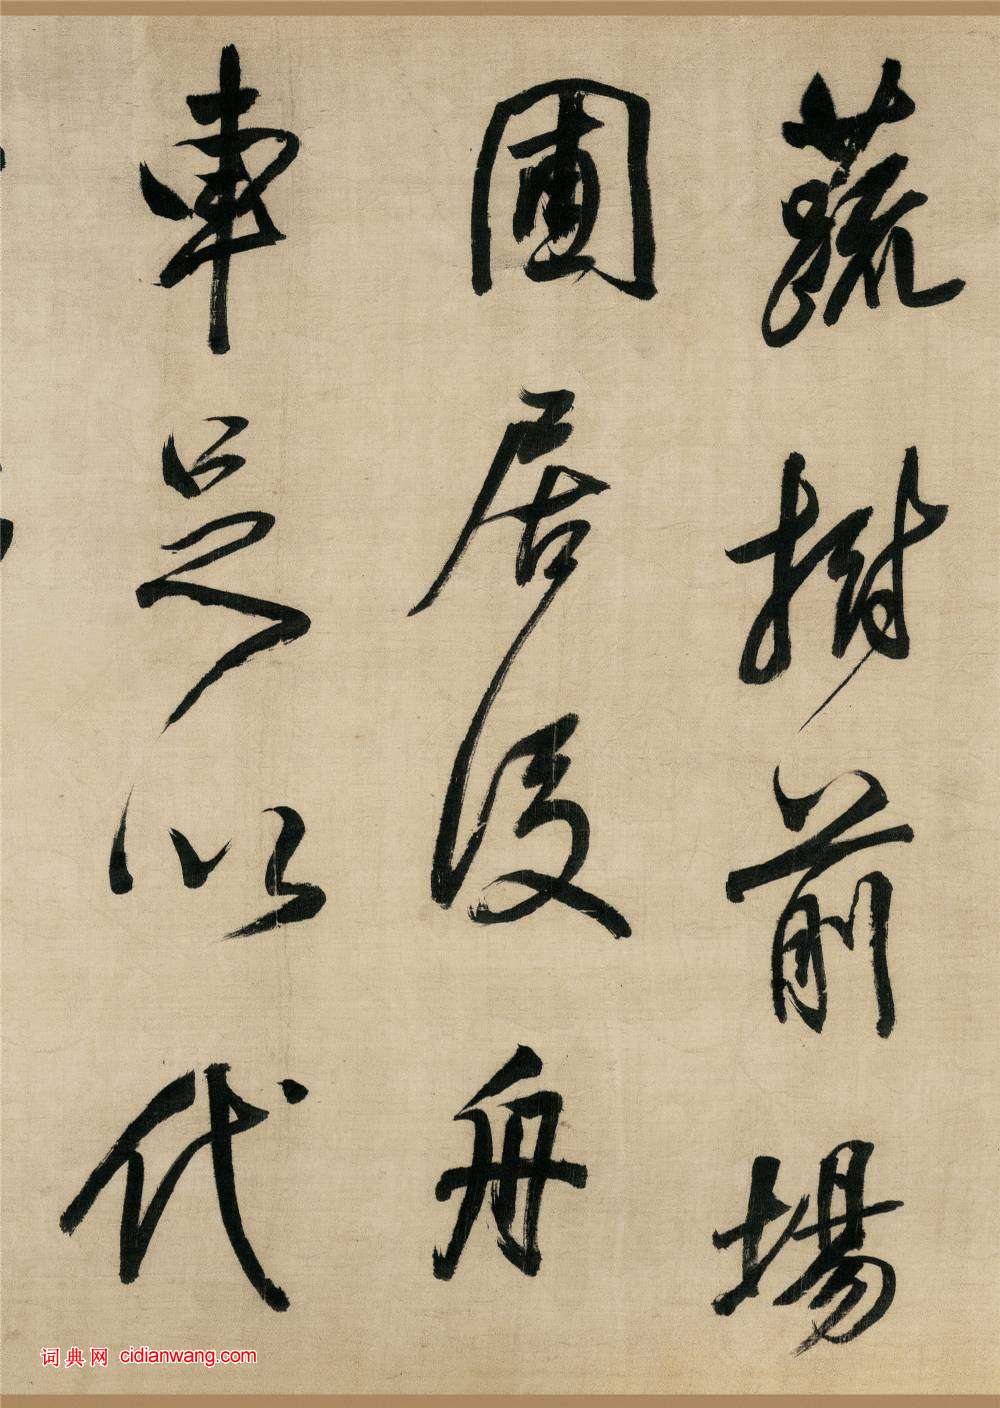 蔬樹前場
圃居後舟
車足以代
词典网 cidianwang.com